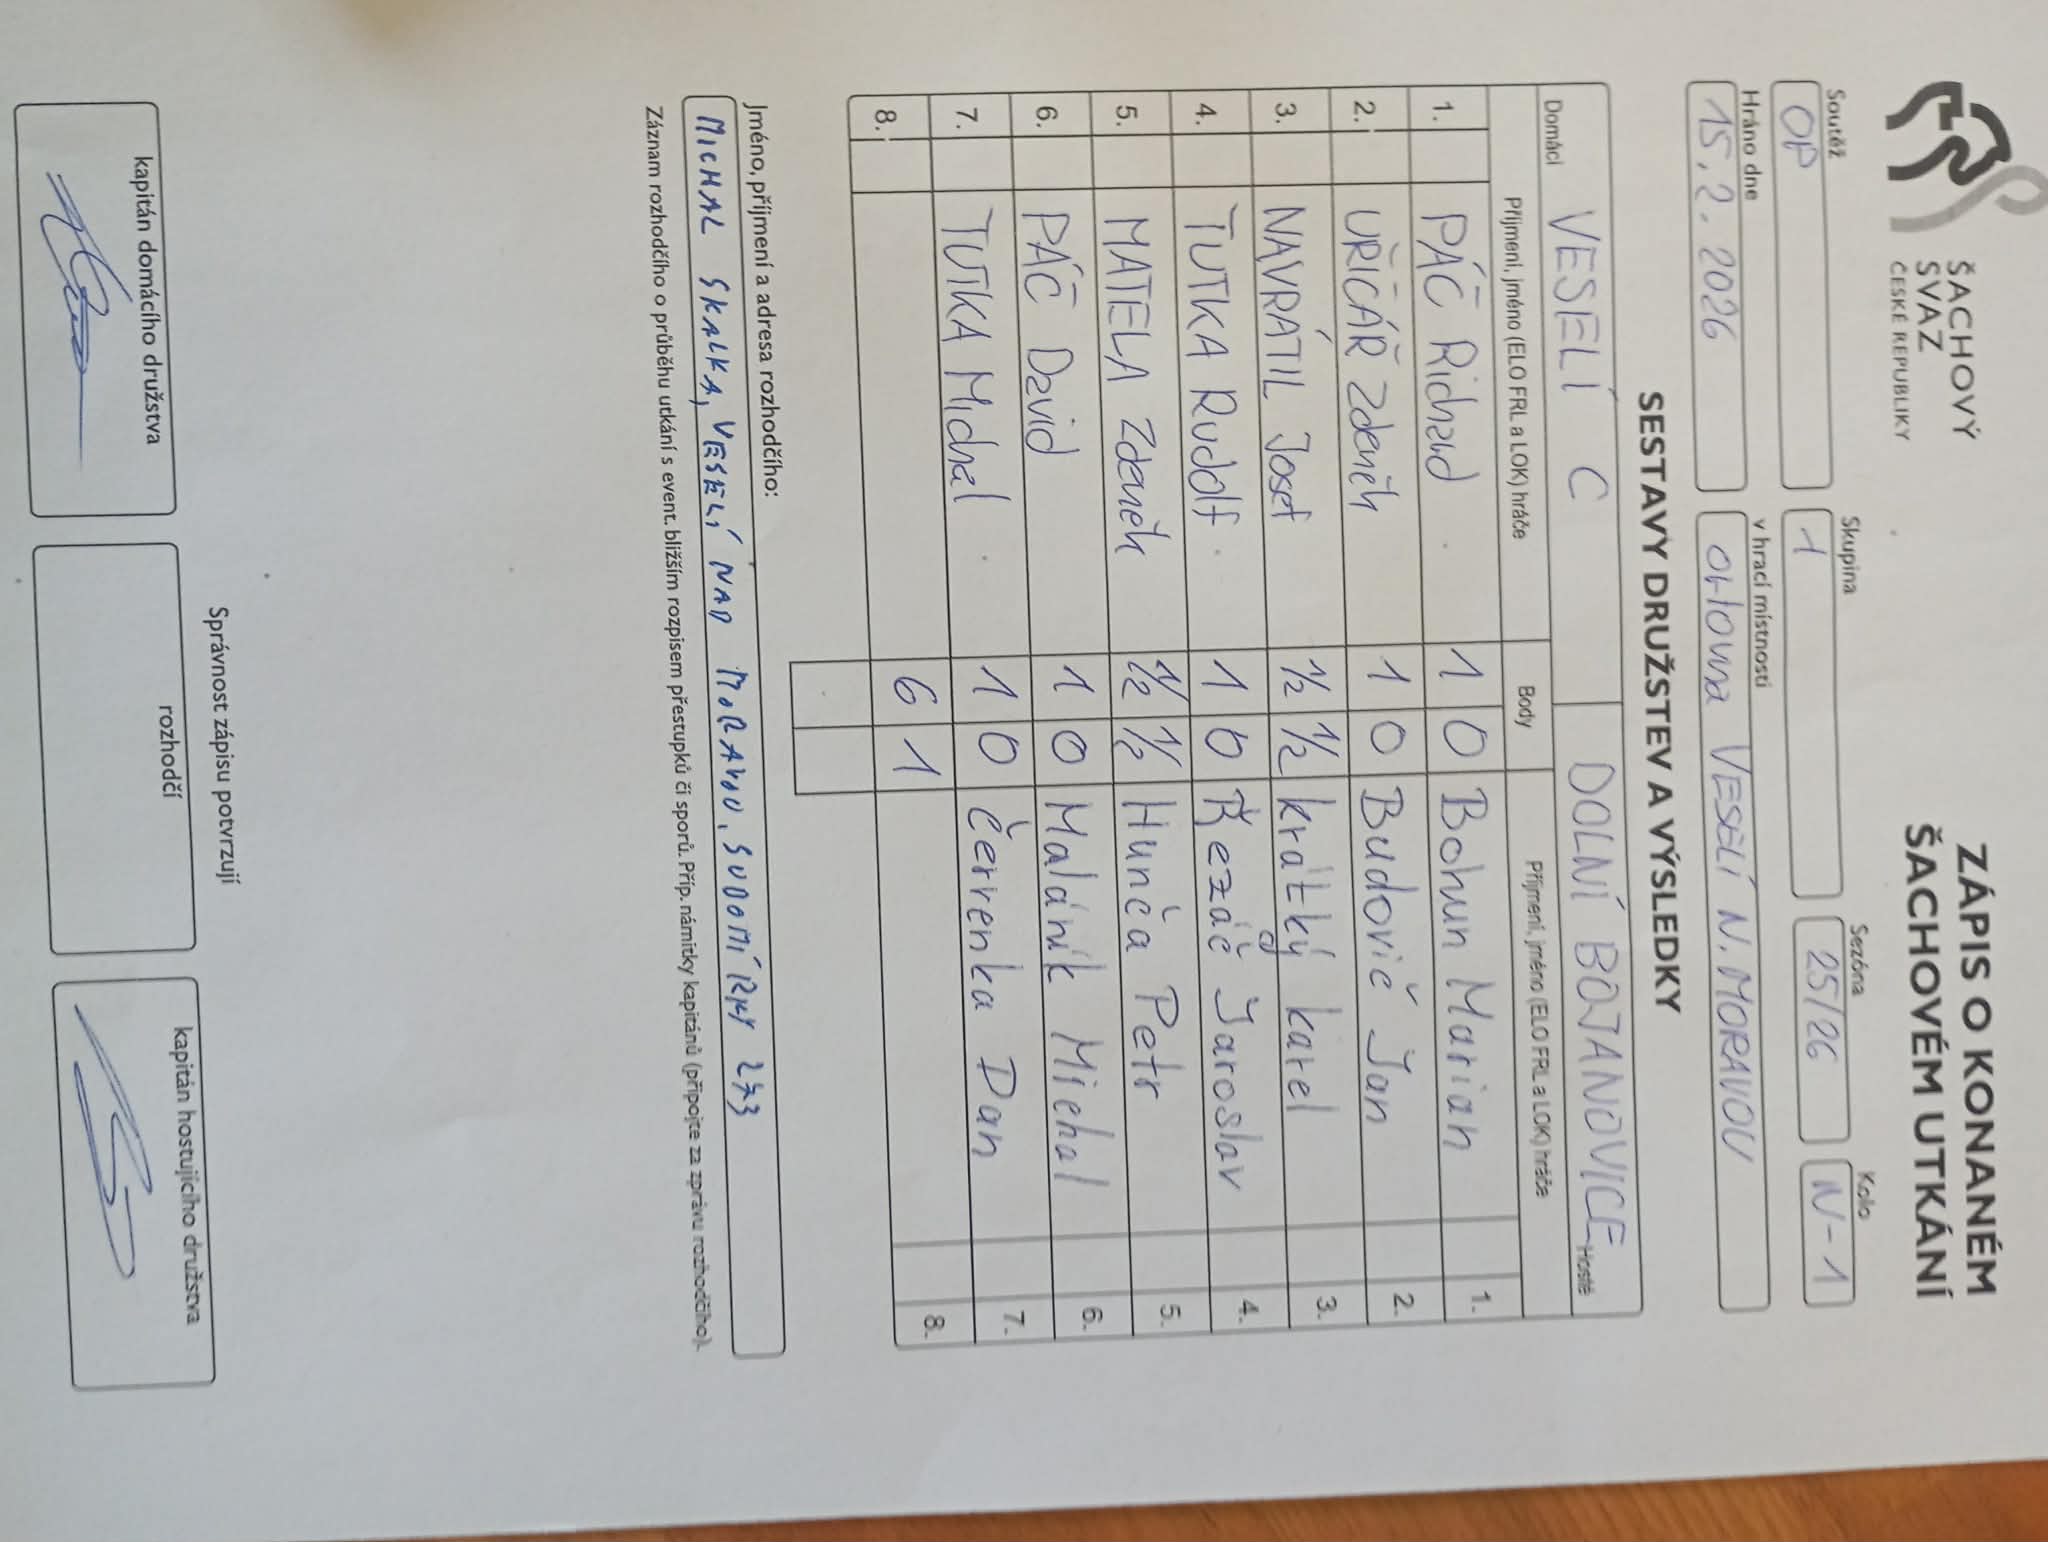 ŠACHOVÝ
SVAZ
ČESKÉ REPUBLIKY
ZÁPIS O KONANÉM
ŠACHOVÉM UTKÁNÍ
Soutěž Skupina Sezóna Kolo
OP 1 25/26 N-1
Hráno dne v hrací místnosti
15.2.2026 orlovna VESELÍ N. MORAVOU
SESTAVY DRUŽSTEV A VÝSLEDKY
Domácí VESELÍ C DOLNÍ BOJANOVICE Hosté
Příjmení, jméno (ELO FRL a LOK) hráče Body Příjmení, jméno (ELO FRL a LOK) hráče
1. PÁČ Richard 1 0 Bohun Marian 1.
2. UŘIČÁŘ Zdeněk 1 0 Budovič Jan 2.
3. NAVRÁTIL Josef 1/2 1/2 krátký karel 3.
4. TUTKA Rudolf 1 0 Řezáč Jaroslav 4.
5. MATELA Zdeněk 1/2 1/2 Hunča Petr 5.
6. PÁČ David 1 0 Maláník Michal 6.
7. TUTKA Michal 1 0 Červenka Dan 7.
8. 6 1 8.
Jméno, příjmení a adresa rozhodčího:
MICHAL SKALKA, VESELÍ NAD MORAVOU, SUDOMÍRKY 273
Záznam rozhodčího o průběhu utkání s event. bližším rozpisem přestupků či sporů. Příp. námitky kapitánů (připojte za zprávu rozhodčího).
Správnost zápisu potvrzují
kapitán domácího družstva rozhodčí kapitán hostujícího družstva